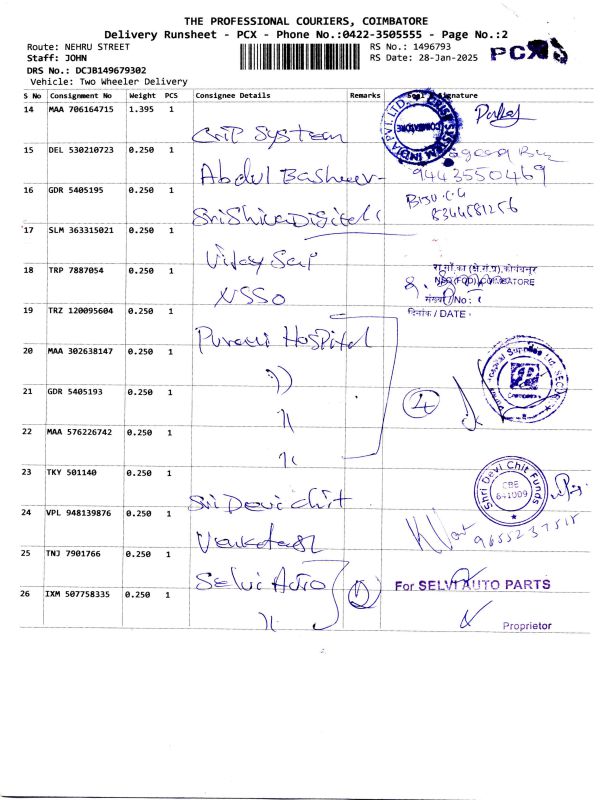 THE PROFESSIONAL COURIERS, COIMBATORE
Delivery Runsheet - PCX - Phone No.:0422-3505555 - Page No.:2
Route: NEHRU STREET
RS No.: 1496793
PCX
Staff: JOHN
RS Date: 28-Jan-2025
DRS No.: DCJB149679302
Vehicle: Two Wheeler Delivery
S No Consignment No Weight PCS Consignee Details Remarks Seal Signature
14 MAA 706164715 1.395 1 System
15 DEL 530210723 0.250 1 Abdul Basheer
9443550469
16 GDR 5405195 0.250 1 Sri Shiva Digitals
Biju C.G
8344581256
17 SLM 363315021 0.250 1 Vijay Sai
18 TRP 7887054 0.250 1 NSSO
रा.सां.का (क्षे.सं.प्र), कोयंबत्तूर
NSO (FOD), COIMBATORE
संख्या / No :
दिनांक / DATE :
19 TRZ 120095604 0.250 1 Purani Hospital
20 MAA 302638147 0.250 1 ))
21 GDR 5405193 0.250 1 ))
4
22 MAA 576226742 0.250 1 ))
23 TKY 501140 0.250 1 Sri Devi chit
Shri Devi Chit Funds
CBE
641009
24 VPL 948139876 0.250 1 Venkatesh
9655237515
25 TNJ 7901766 0.250 1 Selvi Auto
For SELVI AUTO PARTS
26 IXM 507758335 0.250 1 ))
Proprietor